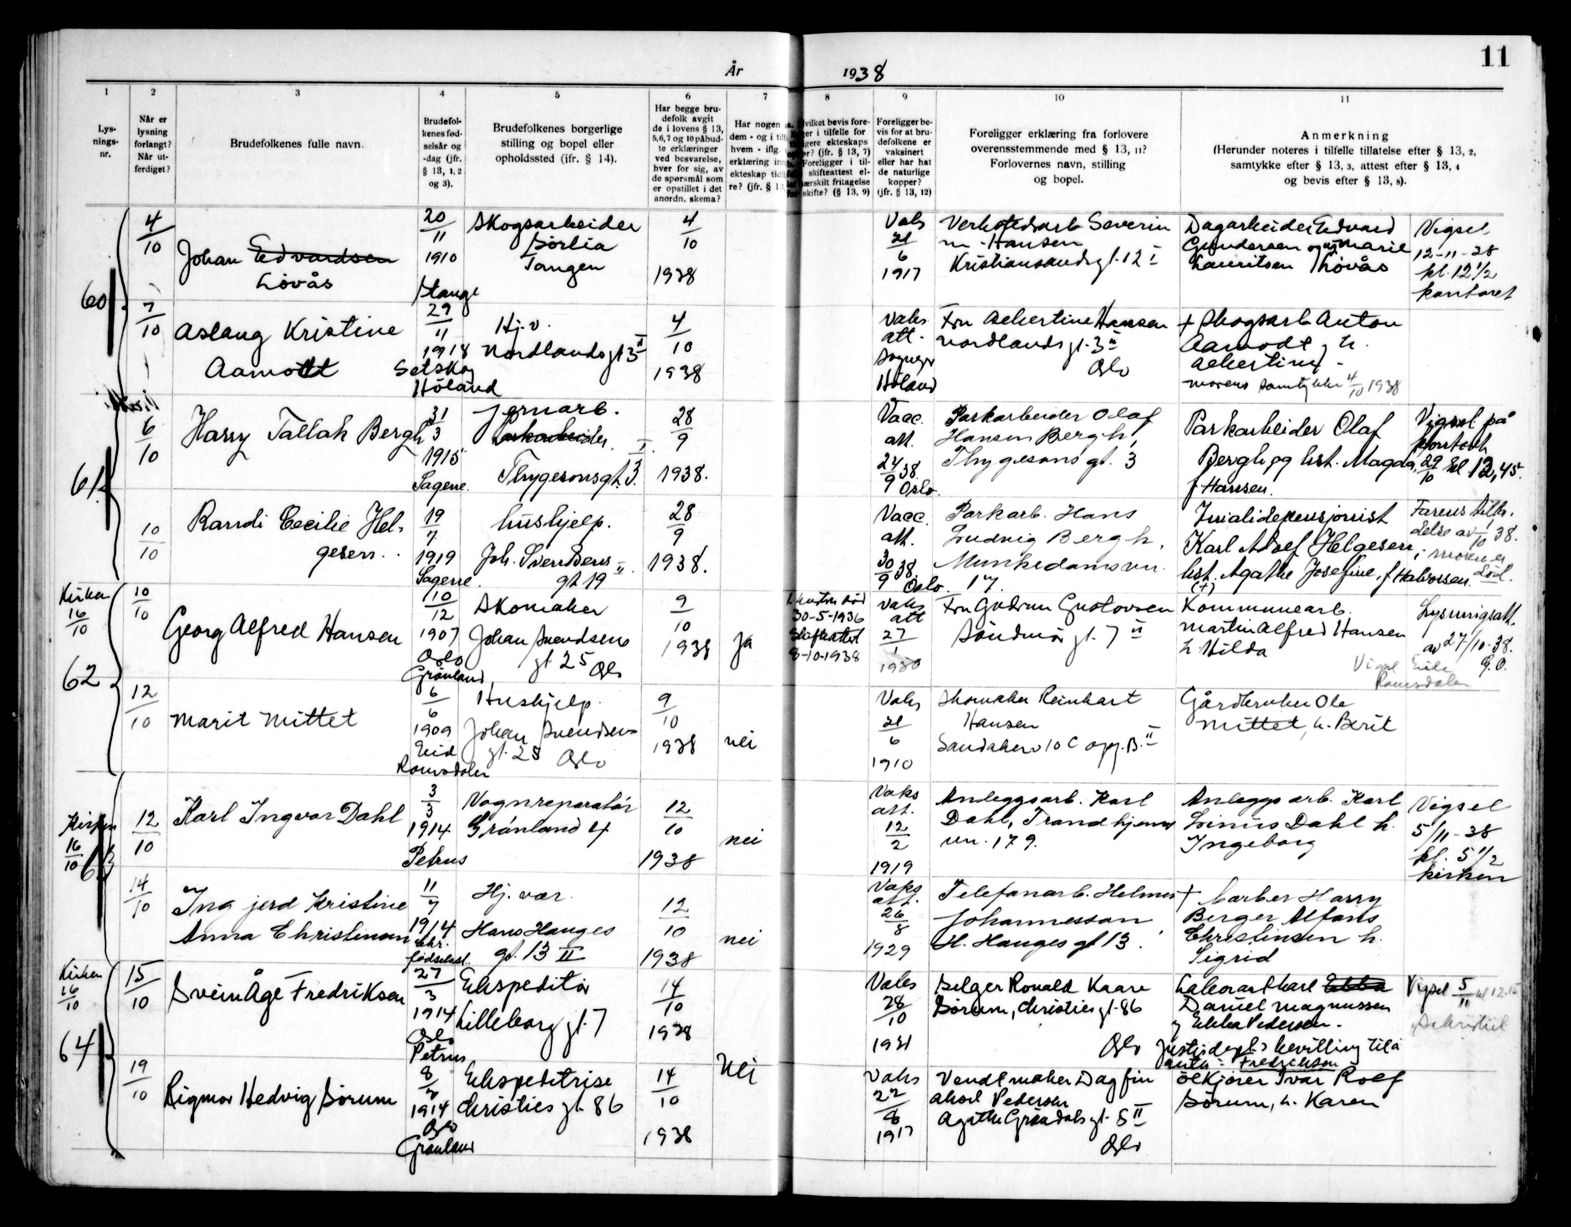 År 1938
11
1 2 3 4 5 6 7 8 9 10 11
Lys-
nings-
nr.
Når er
lysning
forlangt?
Når ut-
ferdiget?
Brudefolkenes fulle navn.
Brudefol-
kenes fød-
selsår og
-dag (jfr.
§ 13, 1, 2
og 3).
Brudefolkenes borgerlige
stilling og bopel eller
opholdssted (ifr. § 14).
Har begge bru-
defolk avgit
de i lovens § 13,
5,6,7 og 10 påbud-
te erklæringer
ved besvarelse,
hver for sig, av
de spørsmål som
er opstillet i det
anordn. skema?
Har nogen
dem - og i
hvem - iflg.
erklæring
ekteskap
re? (jfr. §
bevis fore-
i tilfelle for
ekteskaps
? (jfr. § 13, 7)
Foreligger i til-
skifteattest el-
særskilt fritagelse
skifte? (§ 13, 9)
Foreligger be-
vis for at bru-
defolkene er
vaksinert
eller har hat
de naturlige
kopper?
(jfr. § 13, 12)
Foreligger erklæring fra forlovere
overensstemmende med § 13, 11?
Forlovernes navn, stilling
og bopel.
Anmerkning
(Herunder noteres i tilfelle tillatelse efter § 13, 2,
samtykke efter § 13, 3, attest efter § 13, 4
og bevis efter § 13, 8).
60
4/10
Johan Edvardsen
Lövås
20/11
1910
Stange
Skogsarbeider
Sörlia
Tangen
4/10
1938
Vaks
21/6
1917
Severin
Hansen
Kristiansandsgt. 12 I
Dagarbeider Edvard
Gundersen og Marie
Lauritsen Lövås
Vigsel
12-11-38
kl. 12 1/2
kontoret
7/10
Aslaug Kristine
Aamodt
29/11
1918
Setskog
Höland
Hj. v.
Nordlandsgt 3 II
4/10
1938
Vaks
att.
Höland
Fru Albertine Hansen
Nordlandsgt. 3 II
Oslo
+ Skogsarb Anton
Aamodt h.
Albertine -
morens samtykke 4/10 1938
61
6/10
Harry Tallak Bergh
31/3
1915
Sagene.
Jernarb.
Parkarbeider
Thygesonsgt. 3 I
28/9
1938.
Vacc.
att.
24/9 38
Oslo
Parkarbeider Olaf
Hansen Bergh,
Thygesons gt. 3
Parkarbeider Olaf
Bergh og hst. Magda
f Hansen.
Vigsel på
kontoret
29/10 kl 12,45.
10/10
Randi Cecilie Hel-
gesen.
19/7
1919
Sagene.
hushjelp.
Joh. Svendsens
gt. 19 II.
28/9
1938.
Vacc.
att.
30/9 38.
Oslo
Parkarb. Hans
Ludvig Bergh,
Munkedamsvn.
17.
Invalidepensjonist
Karl Adolf Helgesen,
hst. Agathe Josefine, f Halvorsen
(+)
Farens tilla-
delse av 1/10 38.
moren er
död.
Kirken
16/10
62
10/10
Georg Alfred Hansen
10/12
1907
Oslo
Grönland
Skomaker
Johan Svendsens
gt 25 Oslo
9/10
1938
ja
30-5-1936
Skifteattest
8-10-1938
Vaks
att
27/1
1930
Fru Gudrun Gustavsen
Söndmörgt. 7 II
Kommunearb.
Martin Alfred Hansen
h Hilda
Lysningsatt.
av 27/10-38.
G.O.
Vigsel Eid
Romsdalen
12/10
Marit Mittet
6/6
1909
Eid
Romsdalen
Hushjelp
Johan Svendsens
gt. 25 Oslo
9/10
1938
nei
Vaks
21/6
1910
Skomaker Reinhart
Hansen
Sandakerv 10 C opg. B. II
Gårdbruker Ole
Mittet, h. Berit
Kirken
16/10
63
12/10
Karl Ingvar Dahl
3/3
1914
Petrus
Vognreparatör
Grönland 4
12/10
1938
nei
Vaks
att.
12/2
1919
Anleggsarb. Karl
Dahl, Trondhjems
vn. 179.
Anleggsarb. Karl
Linius Dahl h.
Ingeborg
Vigsel
5/11-38
kl. 5 1/2
kirken
14/10
Ingjerd Kristine
Anna Christinsen
11/7
1914
Chr.
fødselsst.
Hj. vær.
Hans Hauges
gt. 13 II
12/10
1938
nei
Vaks
att.
26/8
1929
Telefonarb. Helmer
Johannesson
H. Hauges gt 13.
+ barber Harry
Berger Alfons
Christinsen h.
Sigrid
Kirken
16/10
64
15/10
Svein Åge Fredriksen
27/3
1914
Oslo
Petrus
Ekspeditör
Lilleborg gt. 7
14/10
1938
Vaks
28/10
1921
Selger Ronald Kaare
Sörum, Christiesgt. 86
Oslo
Karl Ebba
Daniel Magnussen
og Ebba Pedersen.
Justisdept.s bevilling til å
Fredriksen
Vigsel 5/11 kl 12.15
19/10
Sigmor Hedvig Sörum
8/7
1914
Oslo
Grönland
Ekspeditrise
Christies gt. 86
14/10
1938
Nei
Vaks
22/8
1917
Dagfin
Pedersen
Agathe Gröndals gt. 5 II
Oslo
Ölkjörer Ivar Rolf
Sörum, h. Karen